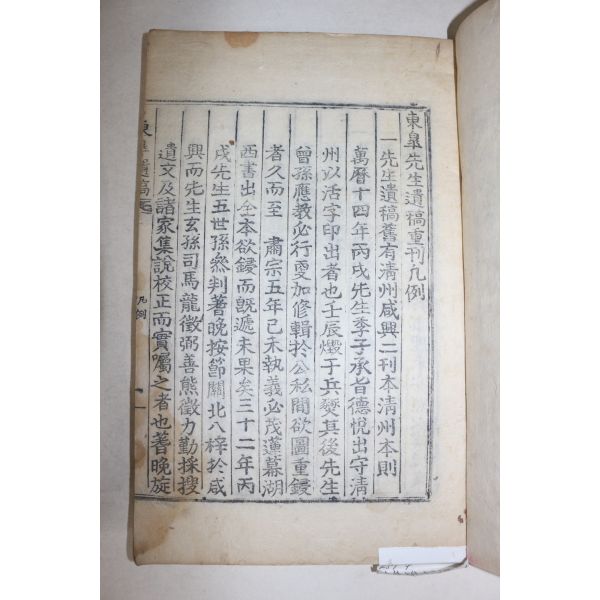 東皐先生遺稿重刊凡例
一先生遺稿舊有清州咸興二刊本清州本則
萬曆十四年丙戌先生季子承旨德悅出守清
州以活字印出者也壬辰燬于兵燹其後先生
曾孫應教必行愛加修輯於公私間欲圖重鋟
者久而至 肅宗五年己未執義必茂蓮幕湖
西書出全本欲鋟而旣遞未果矣三十二年丙
戌先生五世孫叅判著晚按節關北入梓於咸
興而先生玄孫司馬龍徵弼善熊徵力勤採搜
遺文及諸家集說校正而實嘱之者也著晚旋
東皐遺稿
凡例
一